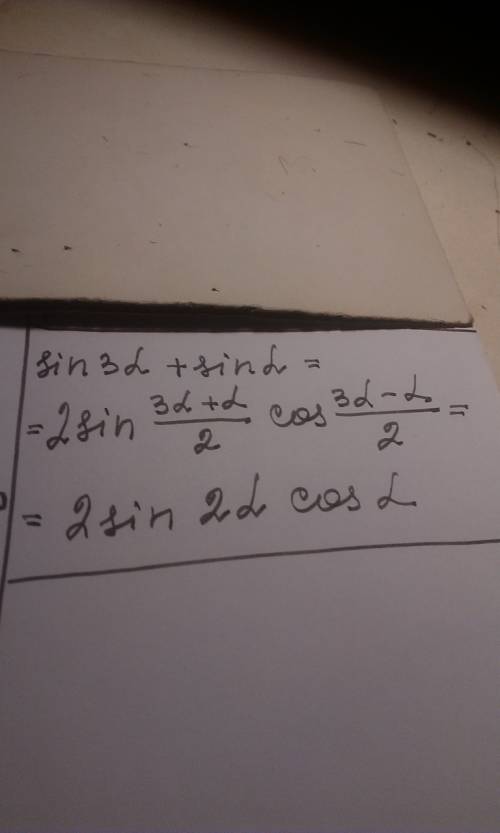 sin 3α + sin α =
= 2 sin (3α + α)/2 cos (3α - α)/2 =
= 2 sin 2α cos α